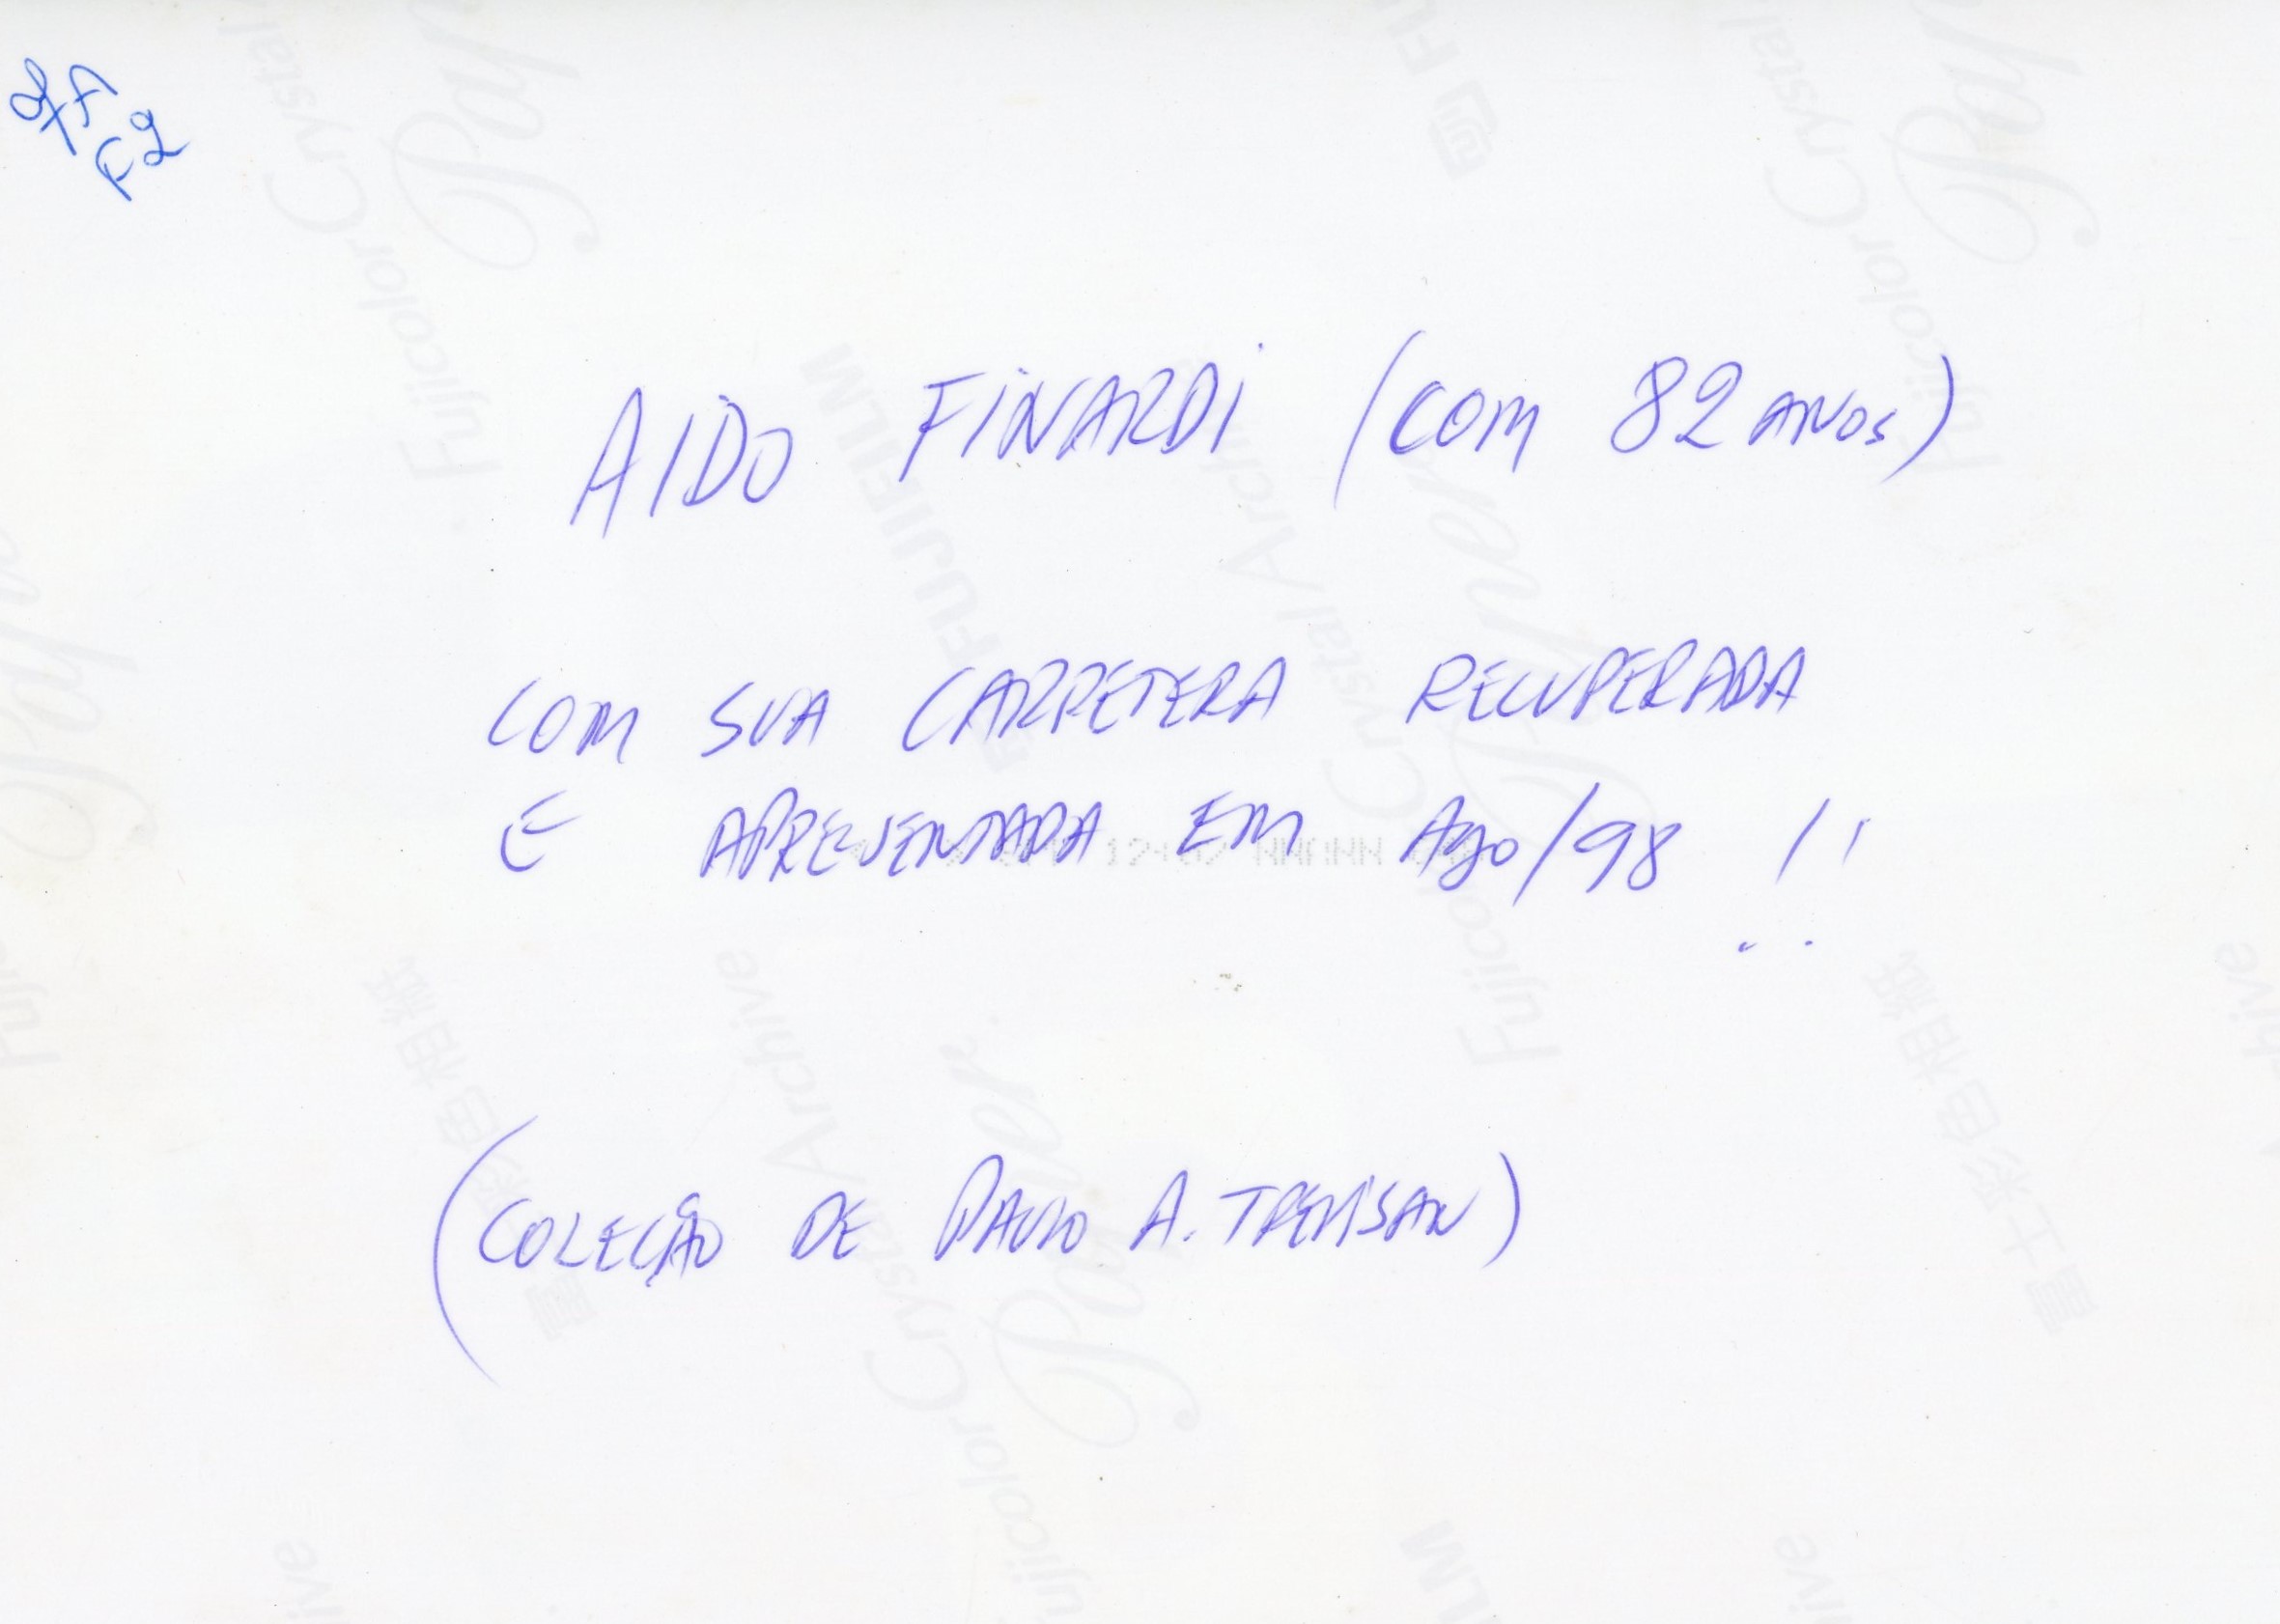 AIDO FINARDI (COM 82 ANOS)
COM SUA CARRETERA RECUPERADA
E APRESENTADA EM AGO/98 !!
(COLEÇÃO DE PAULO A. TREVISAN)
FUJIFILM
Fujicolor Crystal Archive
Paper